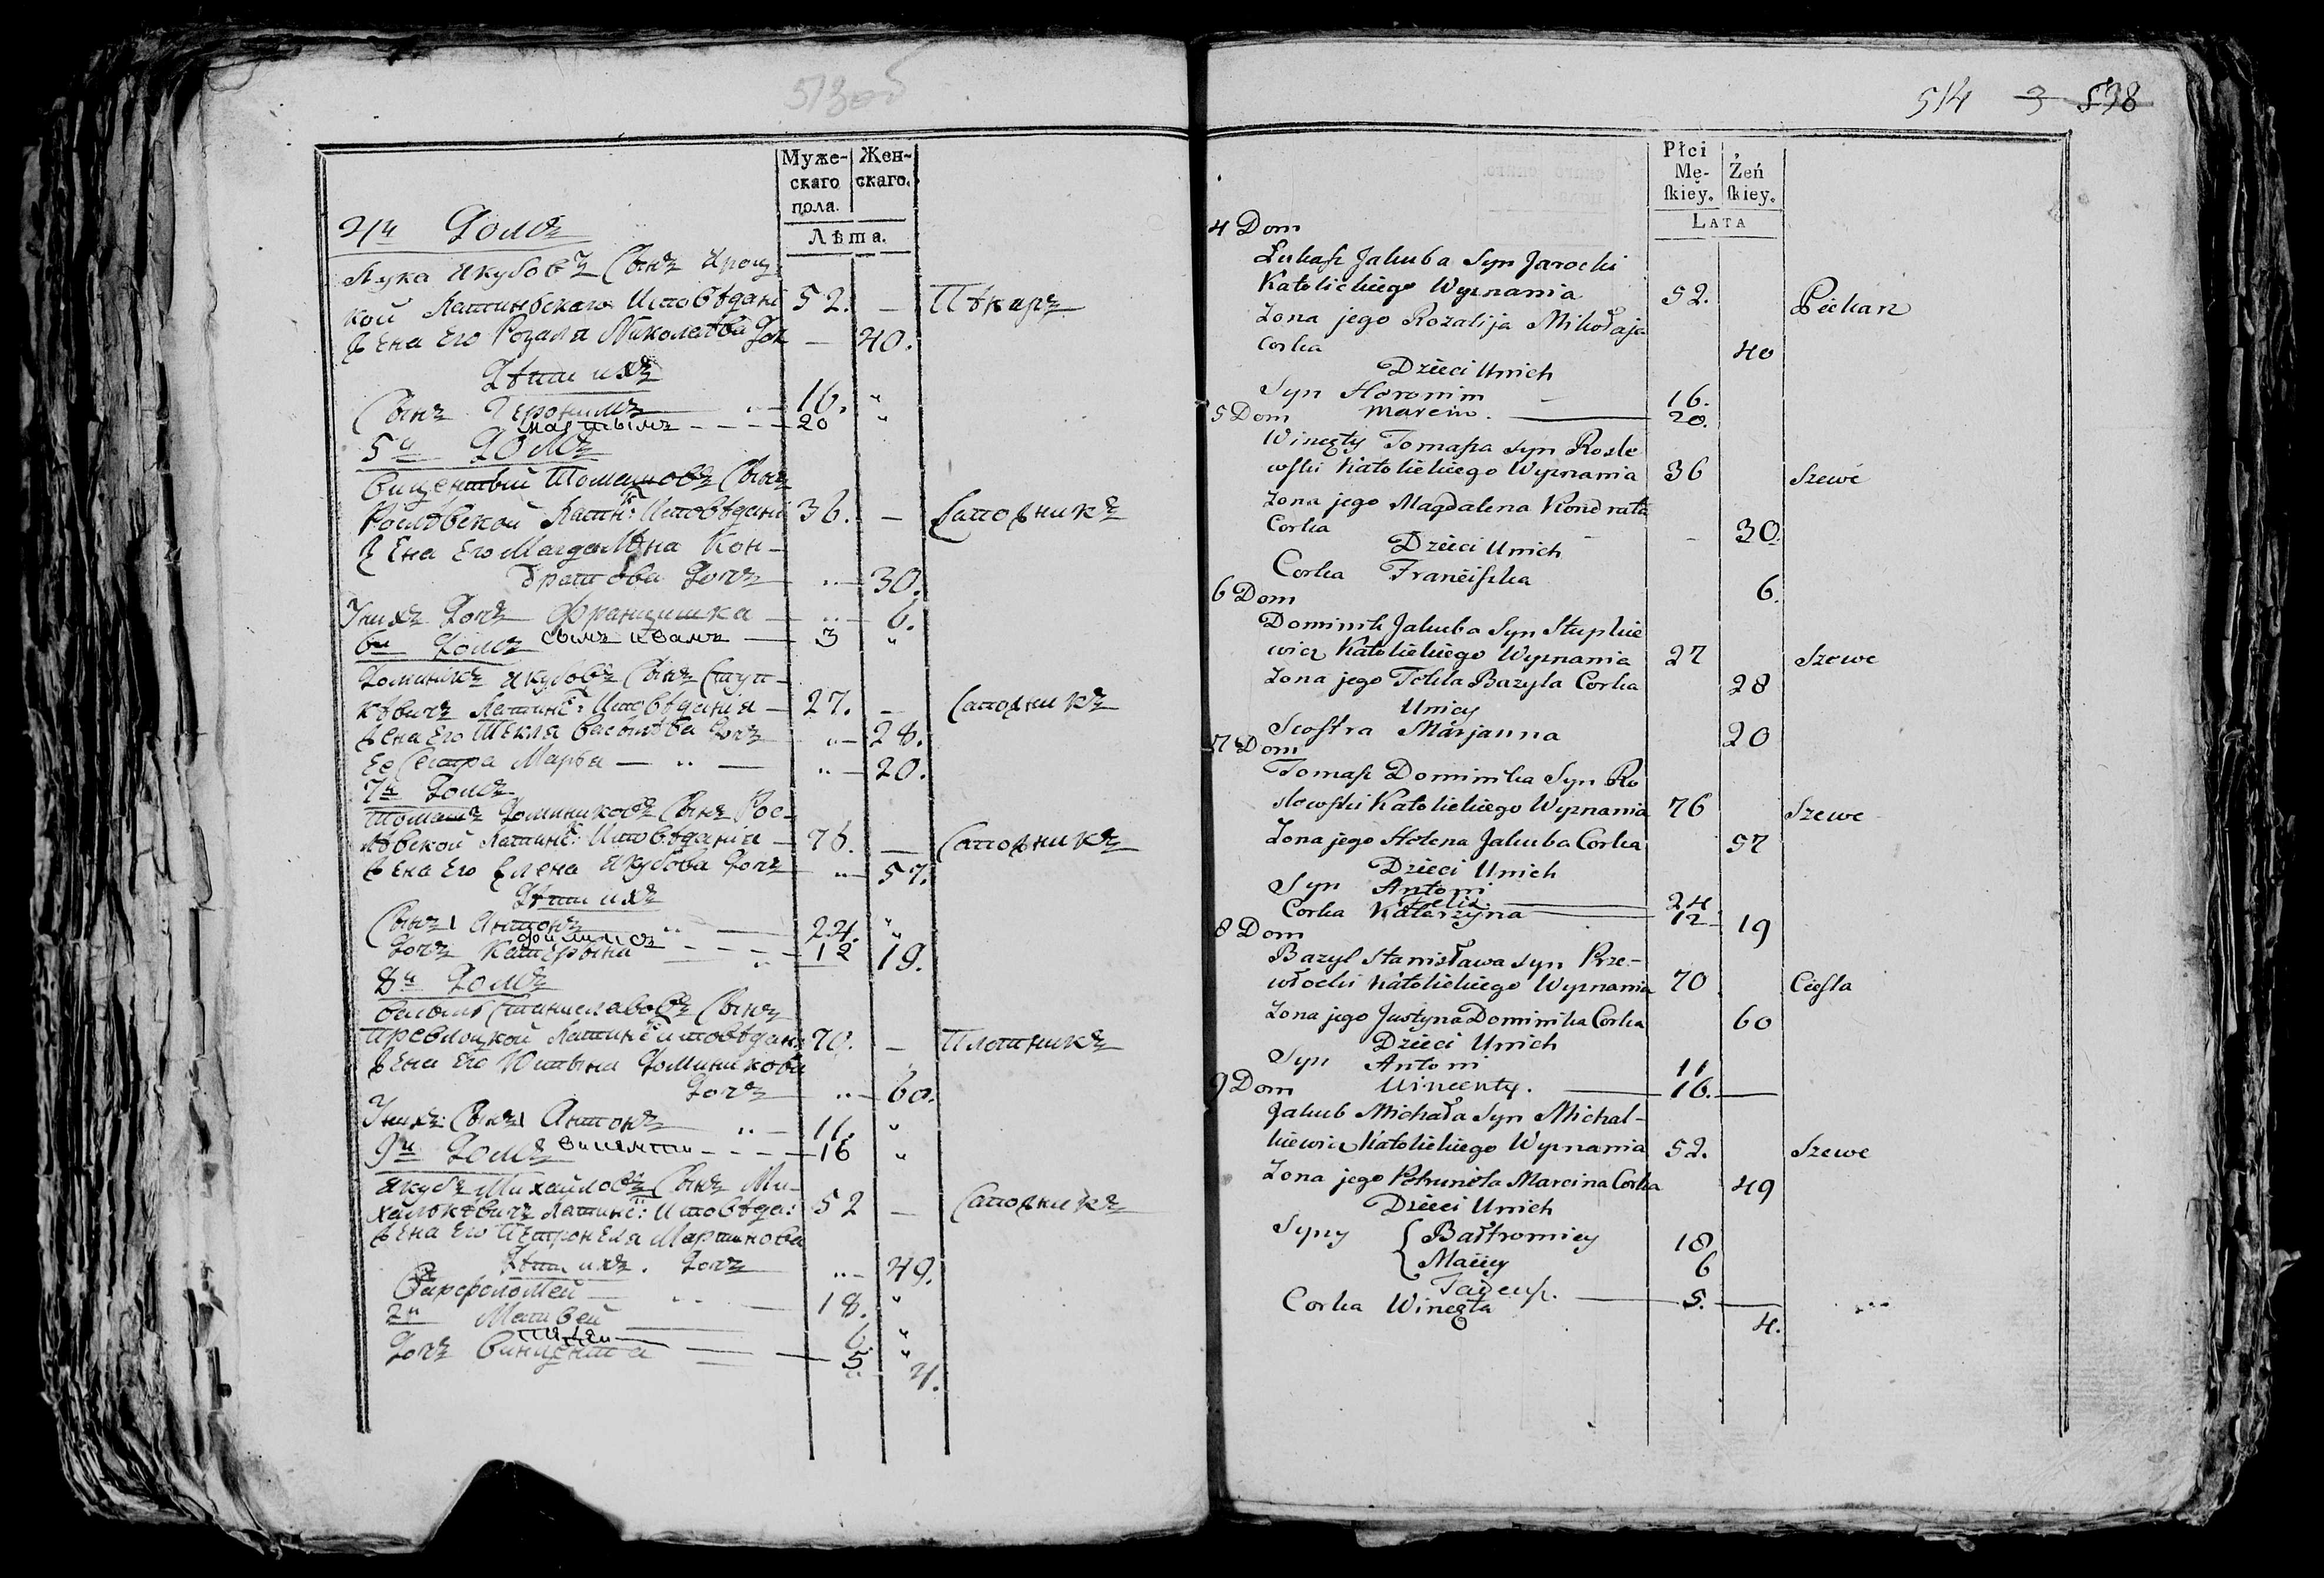 513 об
Муже-
скаго
пола.
Жен-
скаго.
Лѣта.
4й Домъ
Лука Якубовъ Сынъ Яроц
кой Латинскаго Исповѣдані 52. — Пѣкаръ
Жена Его Розаля Николаева Доч — 40.
Дѣти ихъ
Сынъ Геронимъ 16. "
Мартынъ 20 "
5й Домъ
Вицентый Томашовъ Сынъ
Рослѣвской Латин: Исповѣдані 36. — Сапожникъ
Жена Его Магдалѣна Кон-
дратова Дочъ 30.
Унихъ Дочъ Францишка 6.
6й Домъ сынъ Иванъ 3 "
Доминикъ Якубовъ Сынъ Ступ-
кѣвичъ Латинс: Исповѣданія 27. — Сапожникъ
Жена Его Текля Васылѣва Дочъ 28.
Ее Сестра Марья 20.
7й Домъ
Томашъ Доминиковъ Сынъ Рос-
лѣвской Латинс: Исповѣданія 76. — Сапожникъ
Жена Его Елена Якубова Дочъ 57.
Дѣти ихъ
Сынъ Антонъ 24. "
12 "
Дочъ Катерына 19.
8й Домъ
Василь Станиславовъ Сынъ
Превлоцкой Латинс Исповѣдан: 70. — Плотникъ
Жена Его Юстына Доминикова
Дочъ 60.
Унихъ: Сынъ Антонъ 11. "
9й Домъ Винцентi 16 "
Якубъ Михайловъ Сынъ Ми-
халькѣвичъ Латинс: Исповѣда: 52 — Сапожникъ
Жена Его Петронеля Мартинова
Дѣти ихъ. Дочъ 49.
Варфоломей 18. "
2й Матвей 6 "
5 "
Дочъ Винцента 4.
514 3 538
Płci
Mę-
ſkiey.
Żeń
ſkiey.
LATA
4 Dom
Łukaſz Jakuba Syn Jarocki
Katolickiego Wyznania 52. Piekarz
Zona jego Rozalija Mikołaja
Corka 40
Dzieci Unich
Syn Hronim 16.
5 Dom Marcin. 20.
Wincęty Tomaſza Syn Rosle
wſki Katolickiego Wyznania 36 Szewc
Zona jego Magdalena Kondrata
Corka 30.
Dzieci Unich
Corka Franciſzka 6.
6 Dom
Dominik Jakuba Syn Stupkie
wicz Katolickiego Wyznania 27 Szewc
Zona jego Tekla Bazyla Corka 28
Unicy
Sioſtra Marjanna 20
7 Dom
Tomaſz Dominika Syn Ro
slewſki Katolickiego Wyznania 76 Szewc
Zona jego Helena Jakuba Corka 57
Dzieci Unich
Syn Antoni 24
Felix. 12
Corka Katarzyna 19
8 Dom
Bazyl Stanisława Syn Prze-
włocki Katolickiego Wyznania 70 Cieſla
Zona jego Justyna Dominika Corka 60
Dzieci Unich
Syn Antoni 11
9 Dom Wincenty. 16.
Jakub Michała Syn Michal-
kiewicz Katolickiego Wyznania 52. Szewc
Zona jego Petrunela Marcina Corka 49
Dzieci Unich
Syny { Bałtromiey 18
Maciey 6
Tadeuſz. 5.
Corka Wincęta 4.